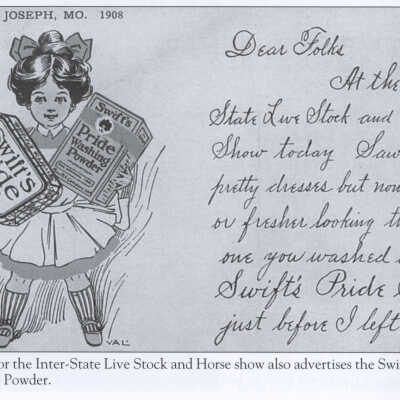 JOSEPH, MO. 1908
Dear Folks
At the
State Live Stock and
Show today Saw
pretty dresses but non
or fresher looking th
one you washed
Swift's Pride
just before I left
Swift's
Pride
Washing
Powder
Swift's
Pride
VAL
or the Inter-State Live Stock and Horse show also advertises the Swi
Powder.